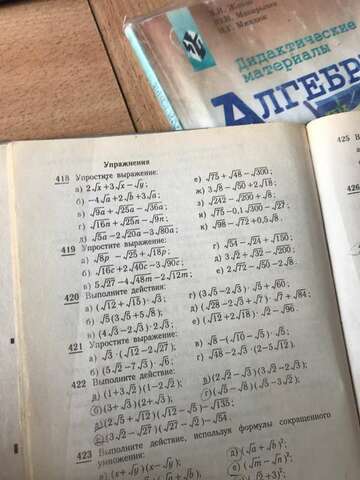 Дидактические
материалы
АЛГЕБР
Упражнения
418 Упростите выражение:
а) 2√x+3√x−√y;
б) −4√a+2√b+3√a;
в) √9a+√25a−√36a;
г) √16n+√25n−√9n;
д) √5a−2√20a−3√80a;
е) √75+√48−√300;
ж) 3√8−√50+2√18;
з) √242−√200+√8;
и) √75−0,1√300−√27;
к) √98−√72+0,5√8.
419 Упростите выражение:
а) √8p − √25+√18p;
б) √16c+2√40c−3√90c;
в) 5√27−4√48m−2√12m;
г) √54−√24+√150;
д) 3√2+√32−√200;
е) 2√72−√50−2√8.
420 Выполните действия:
а) (√12+√15)·√3;
б) √5(3√5+5√8);
в) (4√3−2√3)·2√3;
г) (3√5−2√3)·√5+√60;
д) (√28−2√3+√7)·√7+√84;
е) (√12+2√18)·√2−√96.
421 Упростите выражение:
а) √3·(√12−2√27);
б) (5√2−7√3)·√6;
в) √8−(√10−√5)·√5;
г) √48−2√3·(2−5√12).
422 Выполните действие:
а) (1+3√2)(1−2√2);
б) (3+√3)(2+√3);
в) (2√5+√12)(√12−√5)−√135;
г) (3√2−√27)(√27−√2)−√54.
д) (2√2−√3)(3√2−2√3);
423 Выполните действие, используя формулы сокращенного
умножения:
а) (x+√y)(x−√y);
425
426